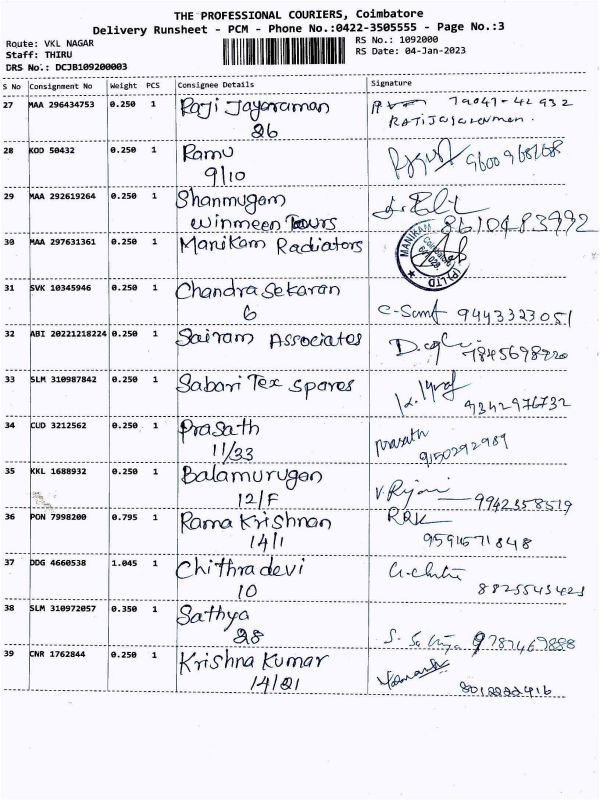 THE PROFESSIONAL COURIERS, Coimbatore
Delivery Runsheet - PCM - Phone No.:0422-3505555 - Page No.:3
Route: VKL NAGAR
Staff: THIRU
DRS No.: DCJB109200003
RS No.: 1092000
RS Date: 04-Jan-2023
S No Consignment No Weight PCS Consignee Details Signature
27 MAA 296434753 0.250 1 Raji Jayaraman 79047-42932
26 RAJIJayaraman.
28 KOD 50432 0.250 1 Ramu
9/10
29 MAA 292619264 0.250 1 Shanmugam
Winmeen Tours 8610483992
30 MAA 297631361 0.250 1 Manikam Radiators MANIKAM (P) LTD
31 SVK 10345946 0.250 1 Chandra Sekaran
6 9443323051
32 ABI 20221218224 0.250 1 Sairam Associates 9845698920
33 SLM 310987842 0.250 1 Sabari Tex Spares
9342976732
34 CUD 3212562 0.250 1 Prasath prasath
11/33 9150292989
35 KKL 1688932 0.250 1 Balamurugan
12/F 9942358519
36 PON 7998200 0.795 1 Rama Krishnan RRK
14/1 9591571848
37 DDG 4660538 1.045 1 Chithra devi
10 8825543423
38 SLM 310972057 0.350 1 Sathya
28 S. Sathya 9787469898
39 CNR 1762844 0.250 1 Krishna Kumar
14/21 8012222416